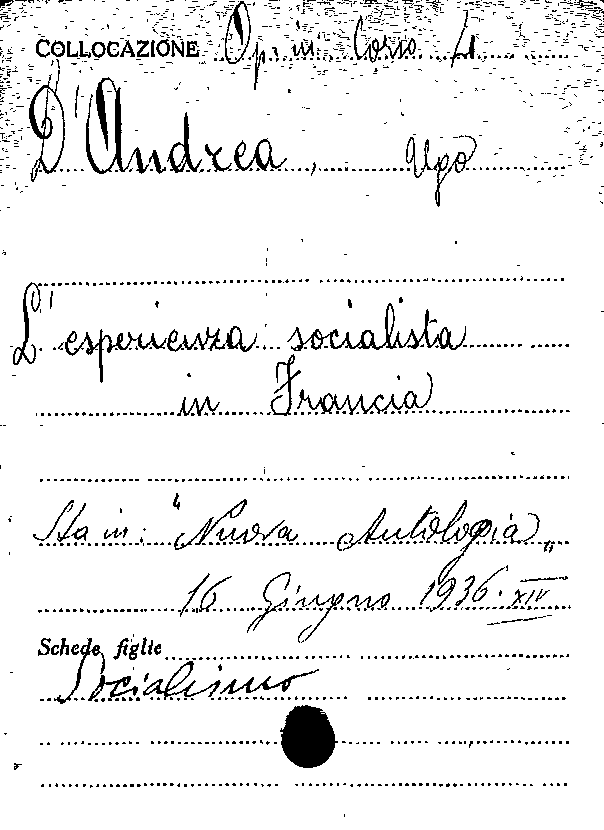 COLLOCAZIONE Op. in Corso 4
D'Andrea, Ugo
L'esperienza socialista
in Francia
Sta in: "Nuova Antologia„
16 Giugno 1936. XIV
Schede figlie
Socialismo